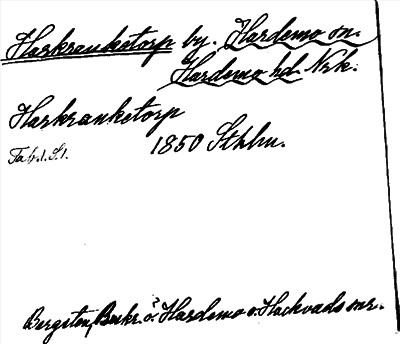 Harkranketorp by. Hardemo sn.
Hardemo hd. Nrk.
Harkranketorp
1850 Sthlm.
Bergsten, Beskr. o. Hardemo o. Hackvads snr.